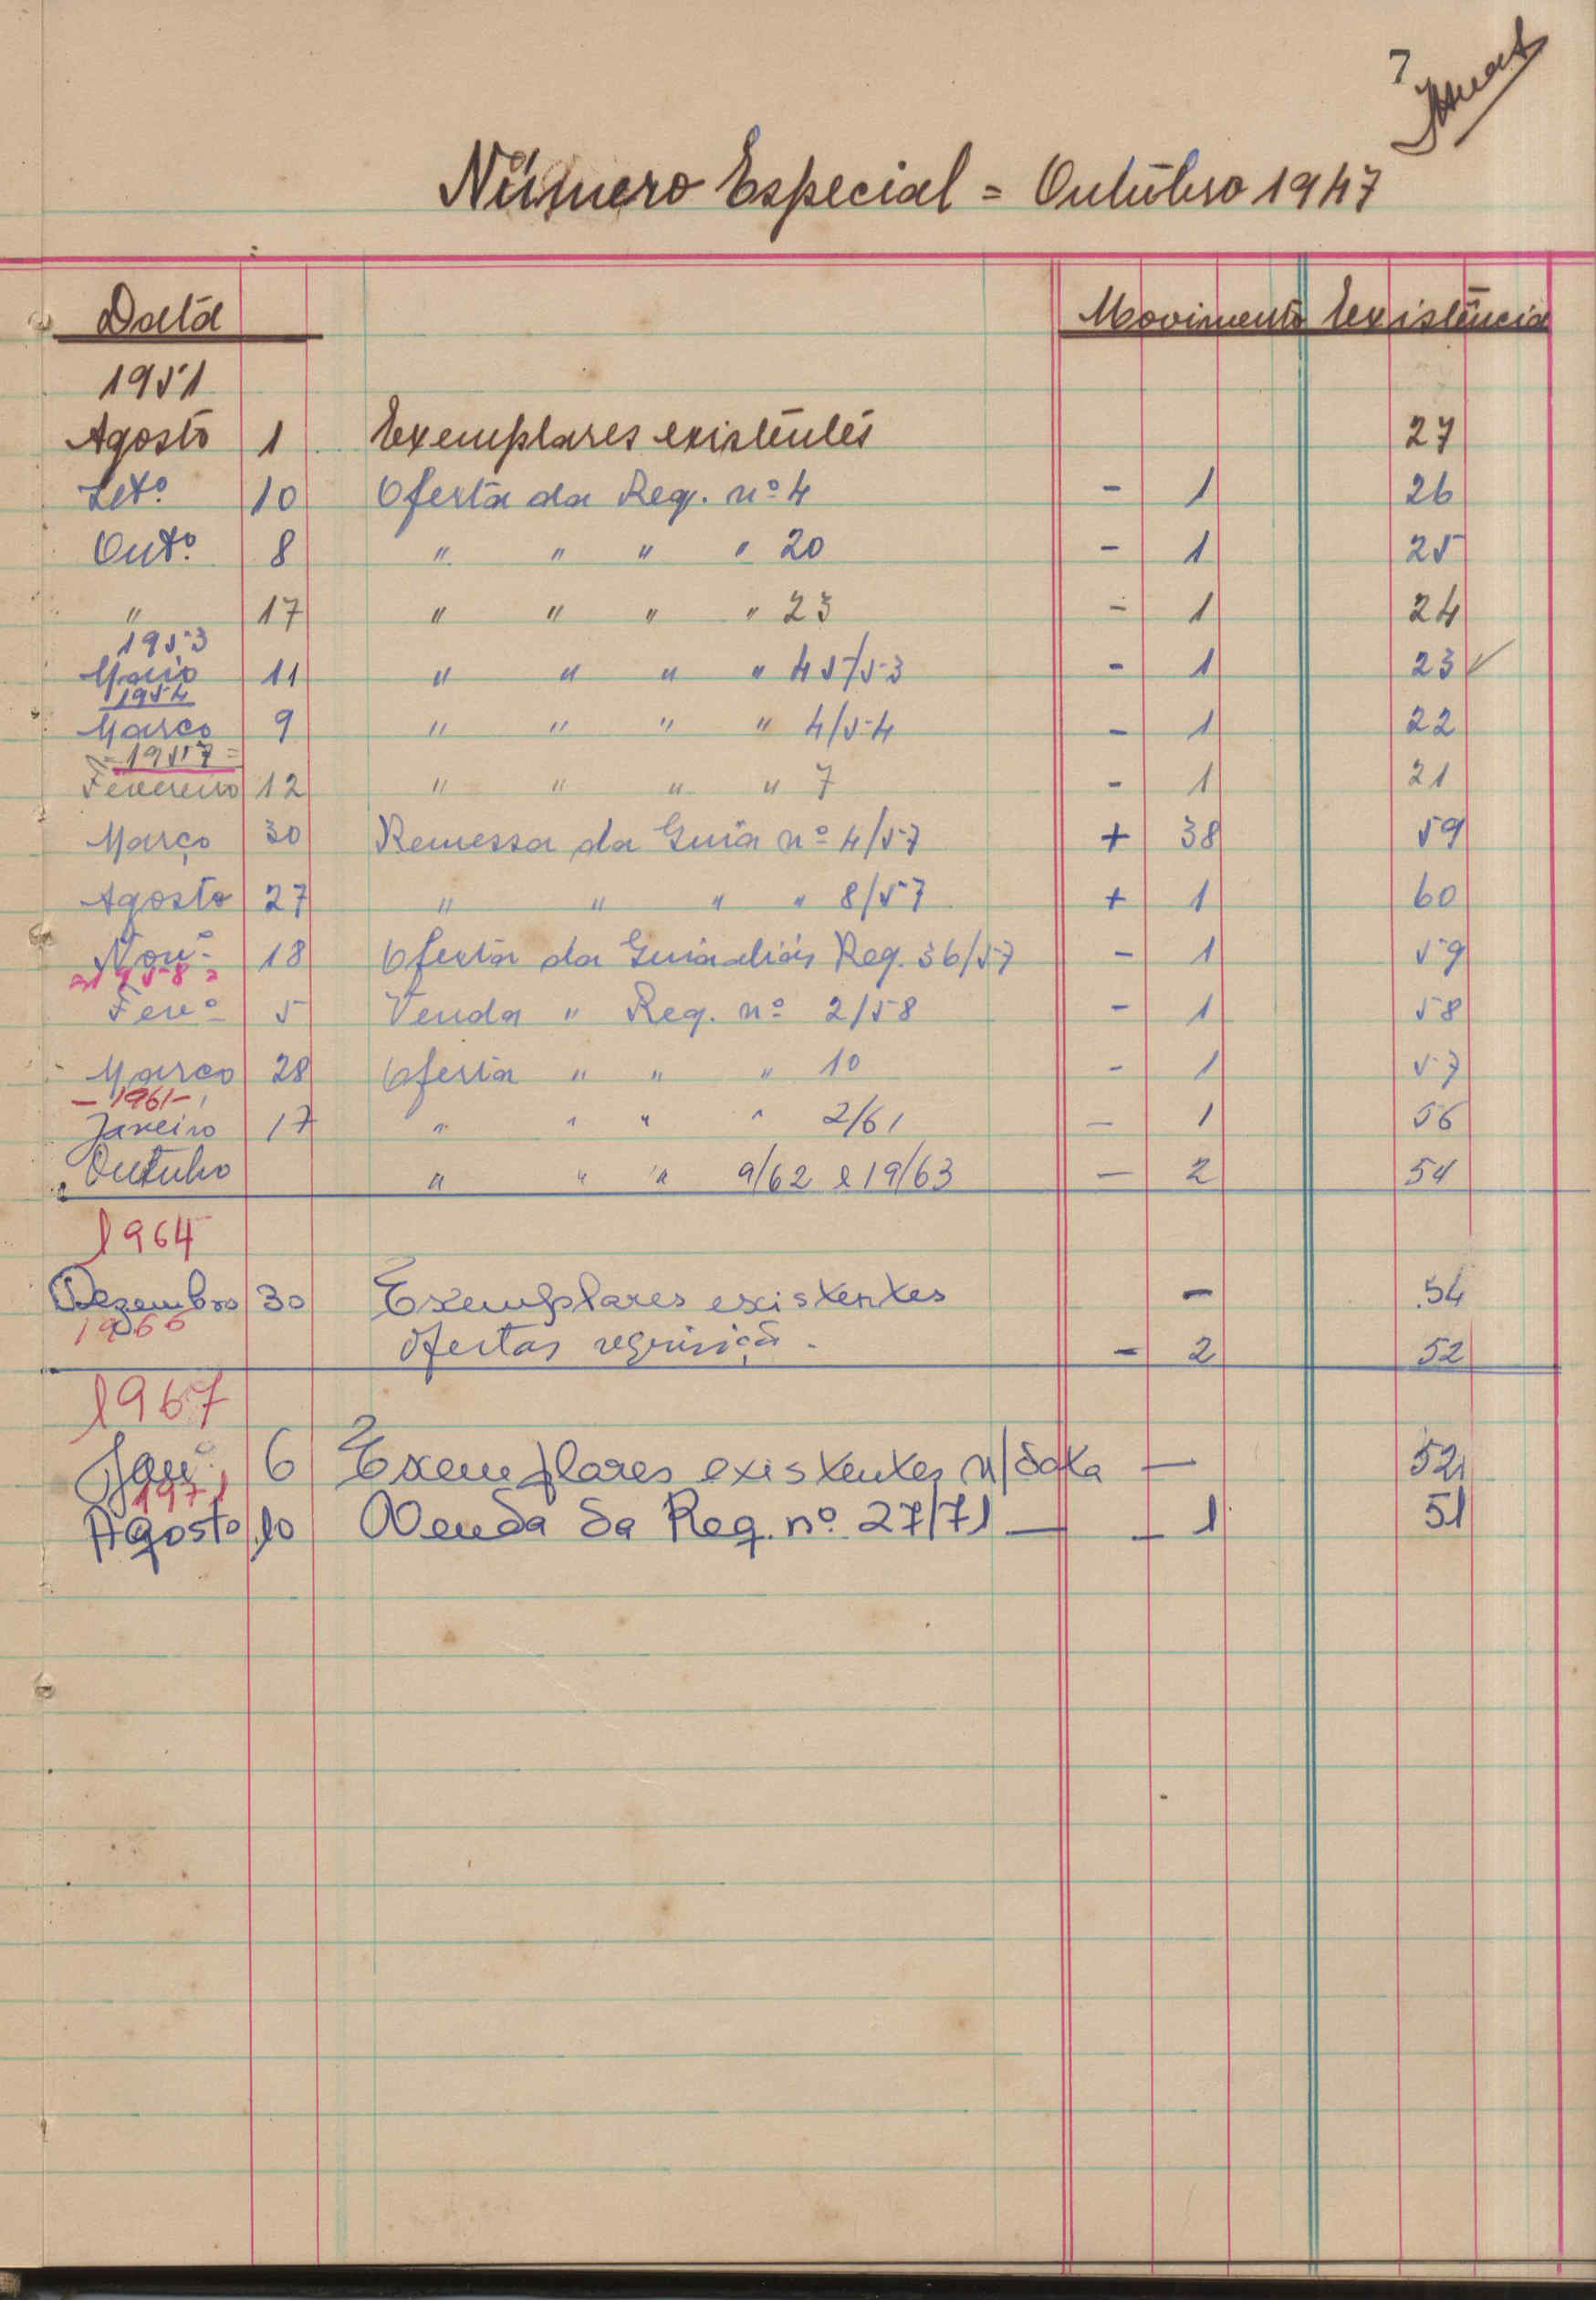 7
Número Especial = Outúbro 1947
Data Movimento Existência
1951
Agosto 1 Exemplares existentes 27
Setº 10 Oferta da Req. nº 4 - 1 26
Outº 8 " " " " 20 - 1 25
" 17 " " " " 23 - 1 24
1953
Maio 11 " " " " 45/53 - 1 23 ✓
1954
Março 9 " " " " 4/54 - 1 22
= 1957 =
Fevereiro 12 " " " " 7 - 1 21
Março 30 Remessa da Guia nº 4/57 + 38 59
Agosto 27 " " " " 8/57 + 1 60
Novº 18 Oferta da Req. 36/57 - 1 59
= 1958 =
Fevº 5 Venda " Req. nº 2/58 - 1 58
Março 28 Oferta " " " 10 - 1 57
- 1961 -
Janeiro 17 " " " " 2/61 - 1 56
Outubro " " " 9/62 e 19/63 - 2 54
1964
Dezembro 30 Exemplares existentes - 54
1966
Ofertas requisiçã. - 2 52
1967
Janº 6 Exemplares existentes n/data - 52
1971
Agosto 10 Venda da Req. nº 27/71 — - 1 51